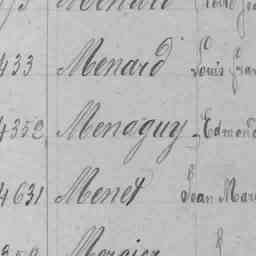 433 Menard Louis Fran
4352 Menaguy Edmond
4631 Menet Jean Mar
Mercier